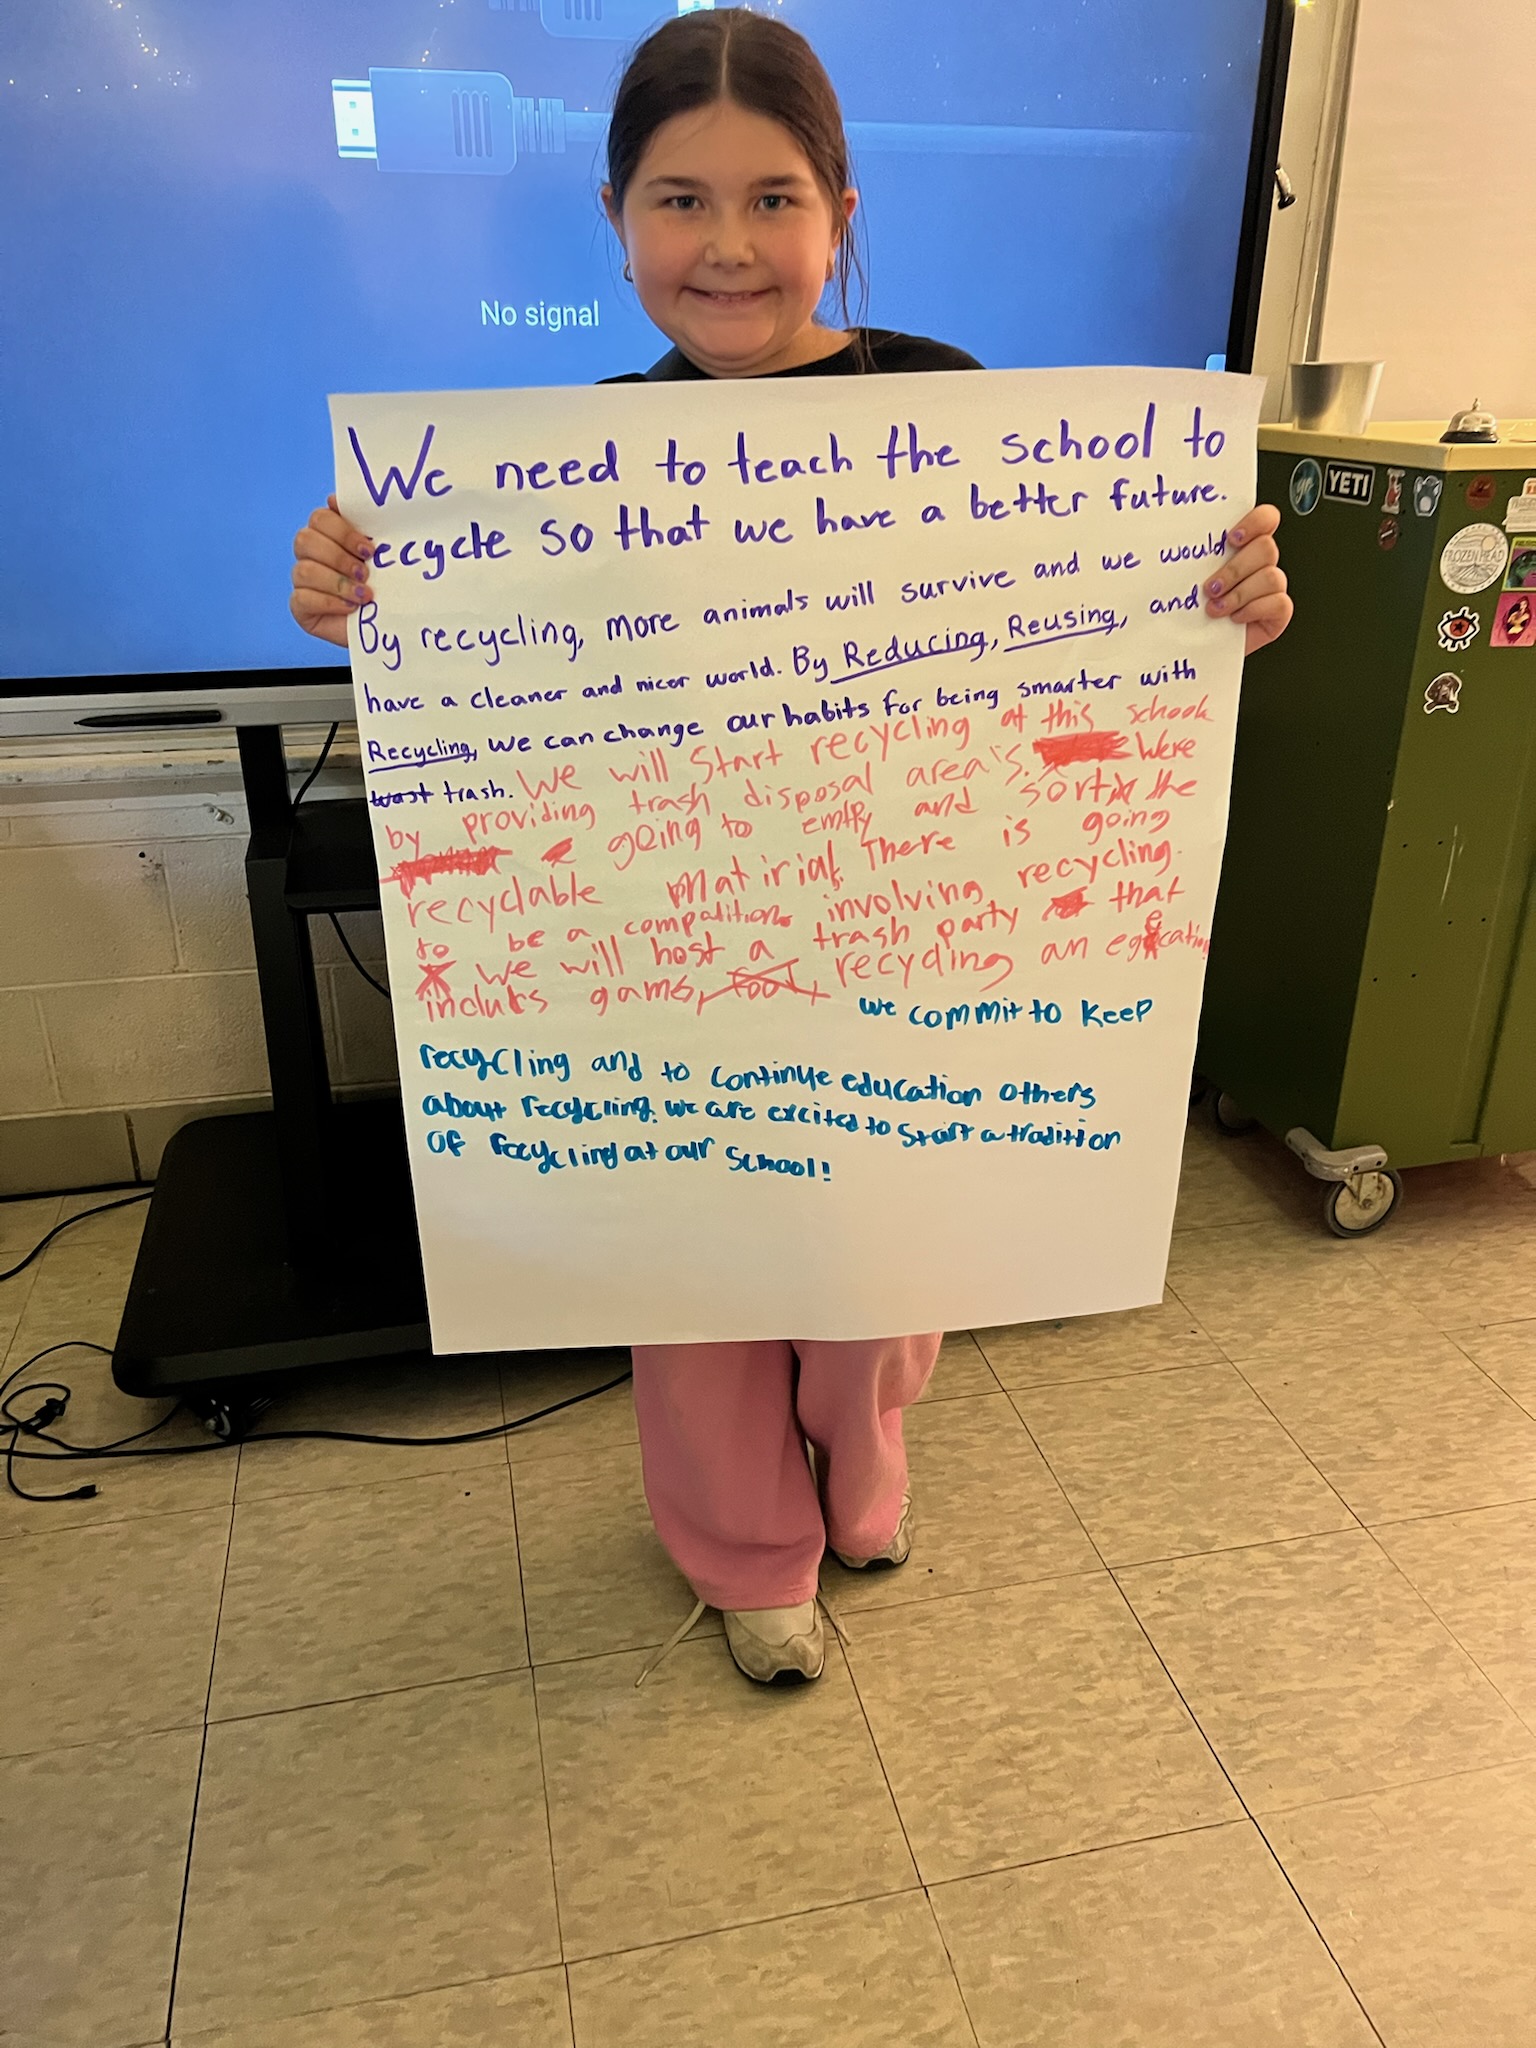 No signal
We need to teach the school to
recycle so that we have a better future.
By recycling, more animals will survive and we would
have a cleaner and nicer world. By Reducing, Reusing, and
Recycling, we can change our habits for being smarter with
wast trash. We will start recycling at this school
by providing trash disposal area's. Were
going to empty and sort the
recyclable matirial. There is going
to be a compatition involving recycling.
We will host a trash party that
includs games, food, recycling an
we commit to keep
recycling and to continue education others
about recycling. we are excited to start a tradition
of recycling at our school!
YETI
FROZEN HEAD